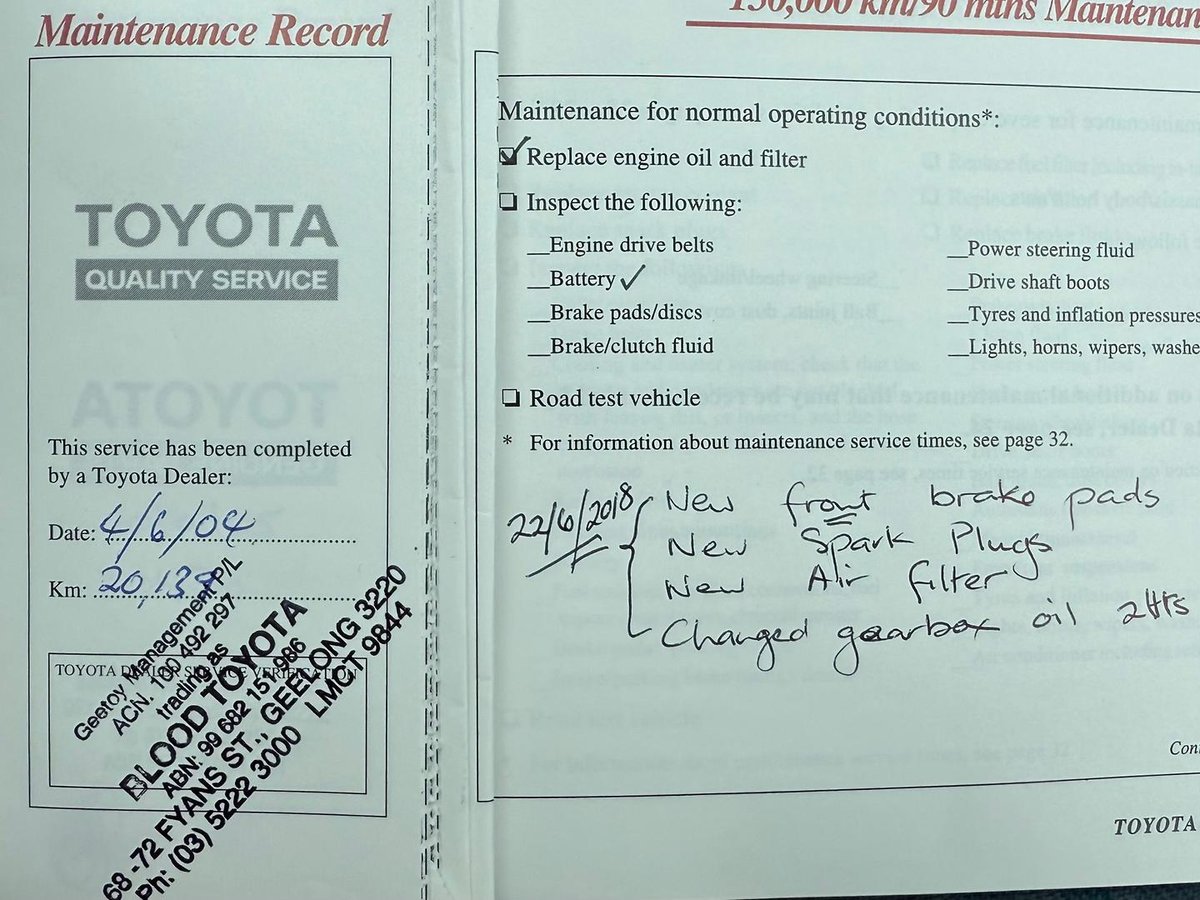 Maintenance Record
TOYOTA
QUALITY SERVICE
This service has been completed
by a Toyota Dealer:
Date: 4/6/04
Km: 20,137
TOYOTA DEALER SERVICE VERIFICATION
Geetoy Management P/L
ACN. 100 492 297
trading as
BLOOD TOYOTA
ABN: 99 682 151 986
68-72 FYANS ST., GEELONG 3220
Ph: (03) 5222 3000 LMCT 9844
150,000 km/90 mths Maintenan
Maintenance for normal operating conditions*:
Replace engine oil and filter
Inspect the following:
Engine drive belts
Battery ✓
Brake pads/discs
Brake/clutch fluid
Power steering fluid
Drive shaft boots
Tyres and inflation pressures
Lights, horns, wipers, washe
Road test vehicle
* For information about maintenance service times, see page 32.
22/6/2018
New front brake pads
New Spark Plugs
New Air filter
Changed gearbox oil
Con
TOYOTA